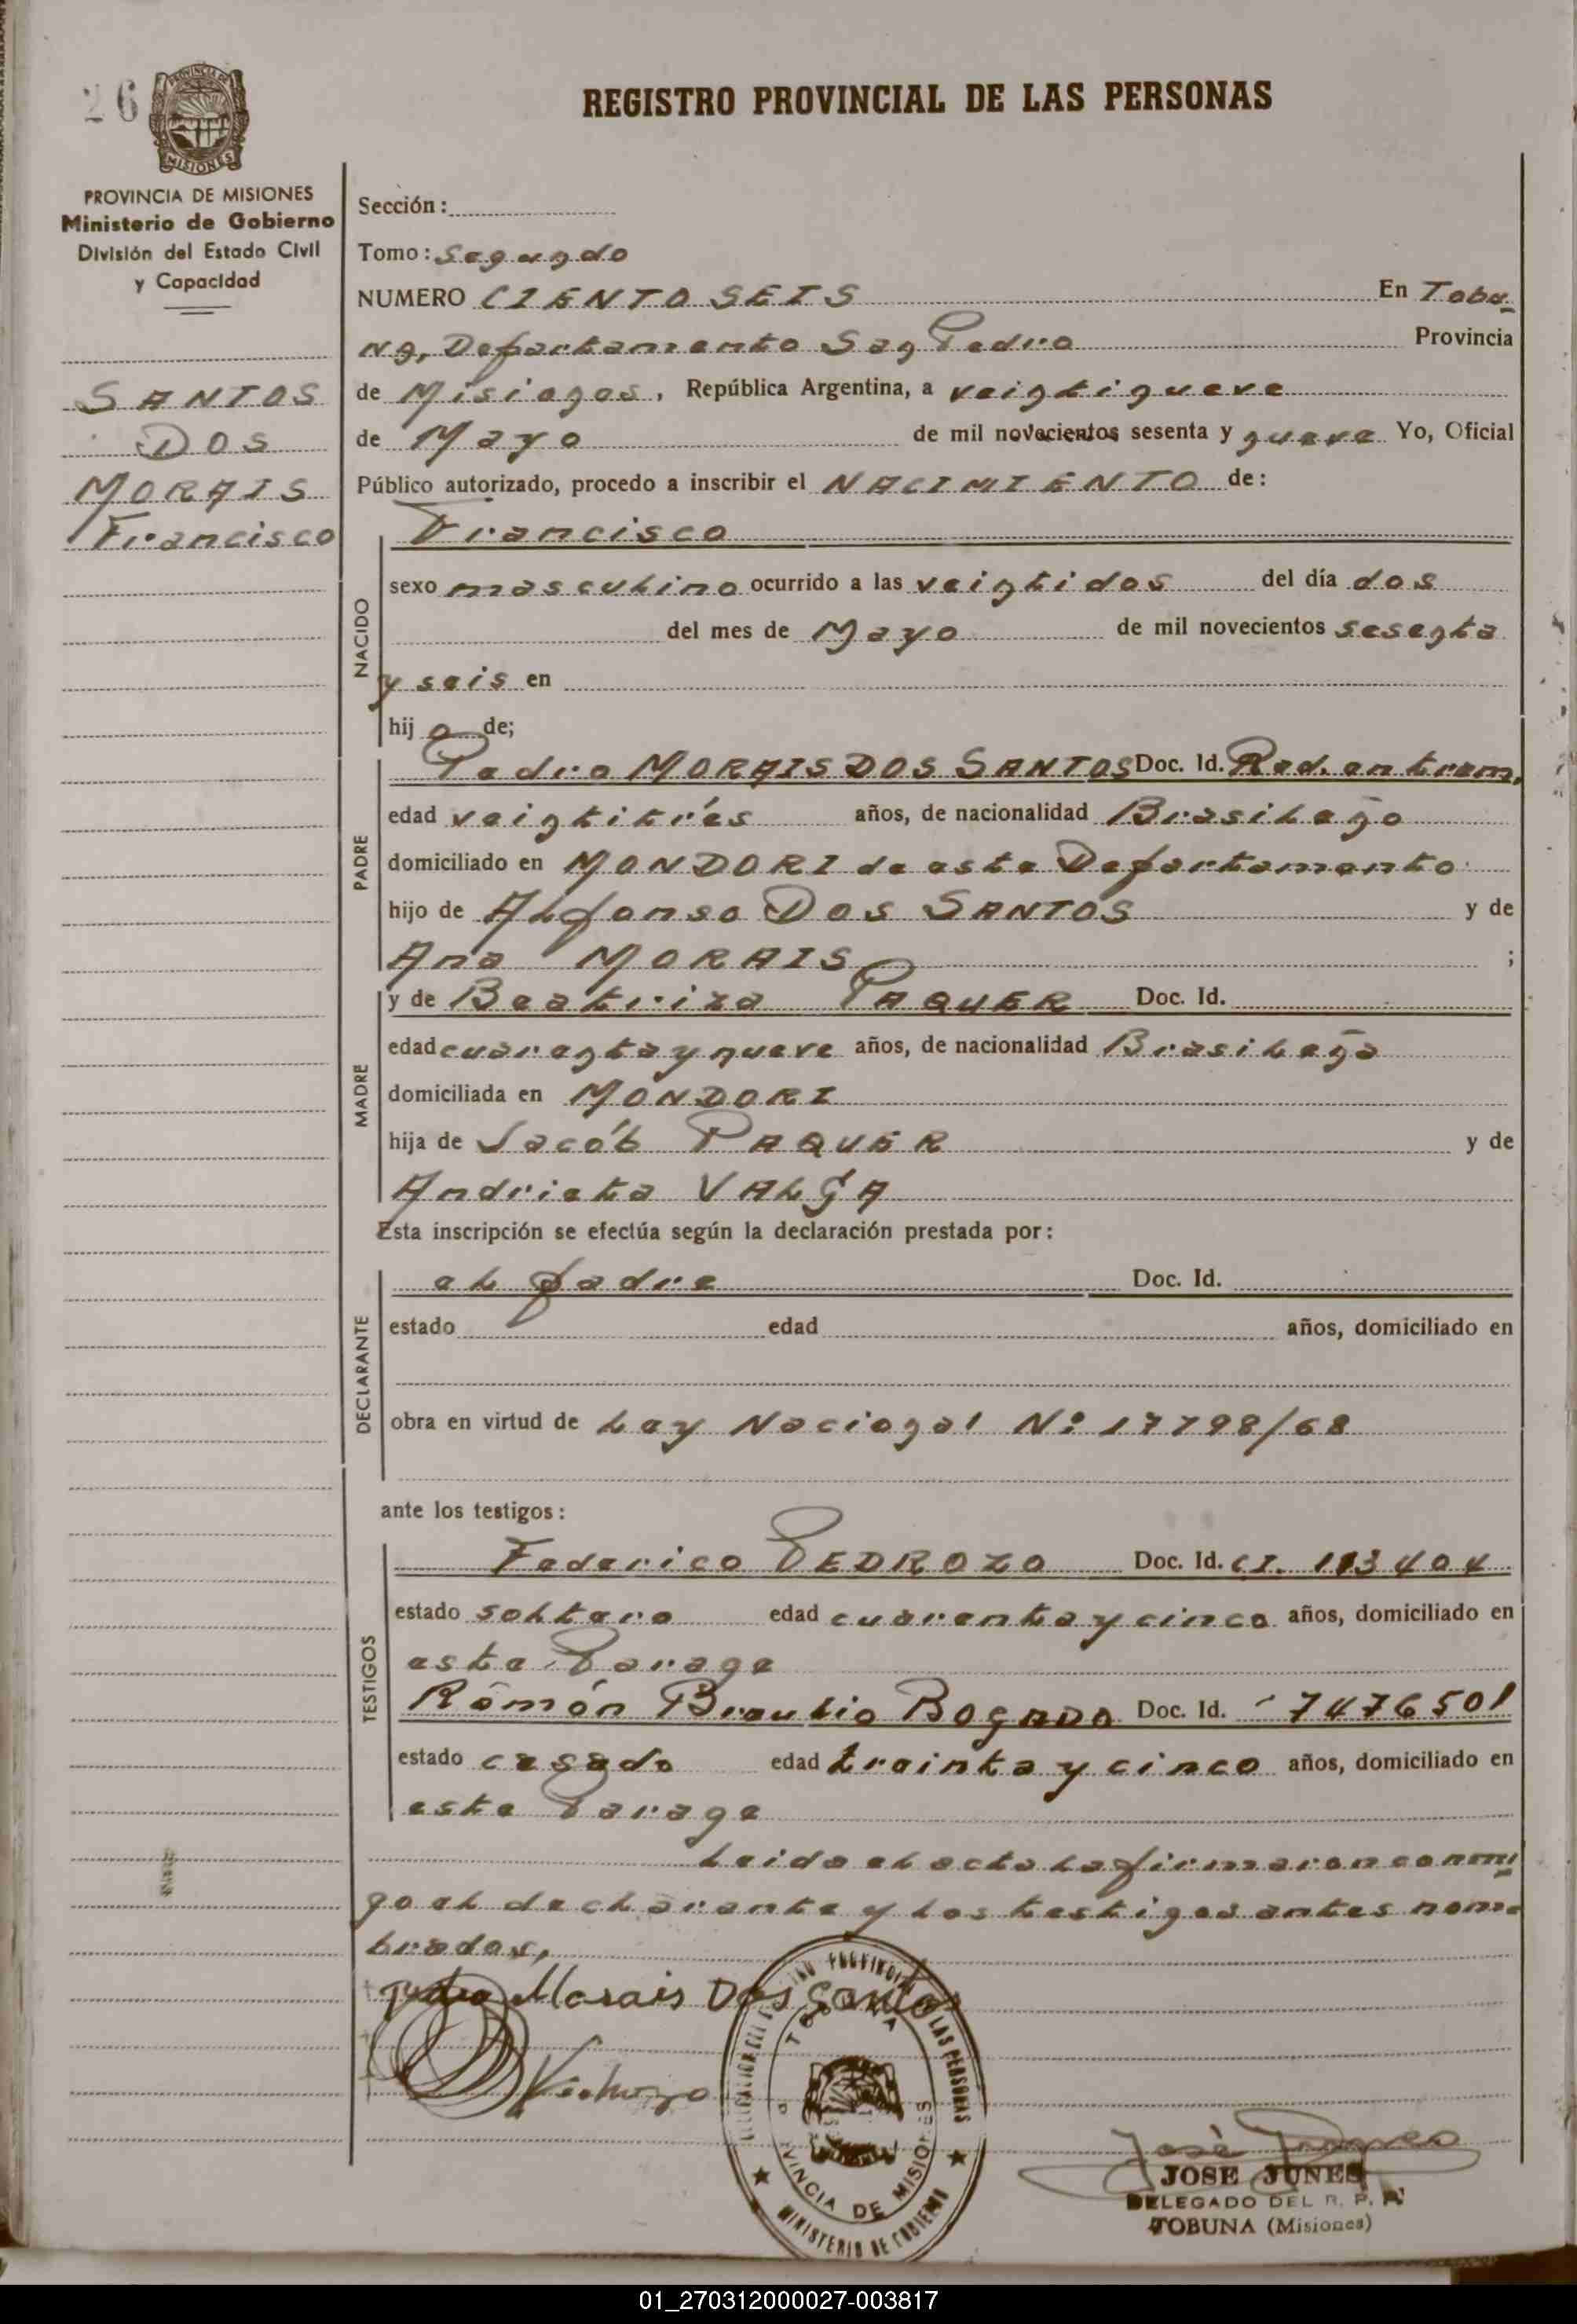 26
PROVINCIA DE MISIONES
Ministerio de Gobierno
División del Estado Civil
y Capacidad
SANTOS
DOS
MORAIS
Francisco
REGISTRO PROVINCIAL DE LAS PERSONAS
Sección:
Tomo: Segundo
NUMERO CIENTO SEIS En Tobu-
na, Departamento San Pedro Provincia
de Misiones, República Argentina, a veintinueve
de Mayo de mil novecientos sesenta y nueve Yo, Oficial
Público autorizado, procedo a inscribir el NACIMIENTO de:
Francisco
NACIDO
sexo masculino ocurrido a las veintidos del día dos
del mes de Mayo de mil novecientos sesenta
y seis en
hij o de;
PADRE
Pedro MORAIS DOS SANTOS Doc. Id. Rad. en tram.
edad veintitrés años, de nacionalidad Brasileño
domiciliado en MONDORI de este Departamento
hijo de Alfonso DOS SANTOS y de
Ana MORAIS ;
MADRE
y de Beatriza PAQUER Doc. Id.
edad cuarenta y nueve años, de nacionalidad Brasileña
domiciliada en MONDORI
hija de Jacób PAQUER y de
Andrieta VALGA
Esta inscripción se efectúa según la declaración prestada por:
DECLARANTE
el padre Doc. Id.
estado edad años, domiciliado en
obra en virtud de Ley Nacional Nº 17798/68
ante los testigos:
TESTIGOS
Federico PEDROZO Doc. Id. CI. 113404
estado soltero edad cuarenta y cinco años, domiciliado en
este Parage
Ramón Braulio BOGADO Doc. Id. 7476501
estado casado edad treinta y cinco años, domiciliado en
este Parage
Leida el acta la firmaron conmi-
go el declarante y los testigos antes nom-
brados,
Pedro Morais Dos Santos
LAS PERSONAS
PROVINCIA DE MISIONES
MINISTERIO DE GOBIERNO
JOSE JUNES
DELEGADO DEL R. P. P.
TOBUNA (Misiones)
01_270312000027-003817